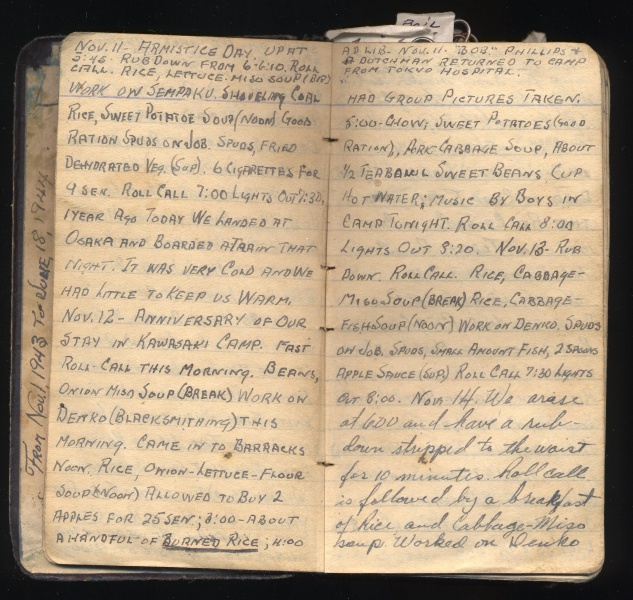 From Nov. 1, 1943 To June 18, 1944.
Nov. 11 - Armistice Day. Up at
5:45. Rub Down from 6-6:10. Roll
Call. Rice, Lettuce-Miso Soup (Br)
Work on Sempaku. Shoveling Coal
Rice, Sweet Potatoe Soup (Noon) Good
Ration Spuds on Job. Spuds, Fried
Dehdrated Veg. (Sup). 6 Cigarettes for
9 sen. Roll Call 7:00 Lights Out 7:30,
1 year ago today we landed at
Osaka and boarded a train that
night. It was very cold and we
had little to keep us warm.
Nov. 12 - Anniversary of our
stay in Kawasaki Camp. Fast
Roll-Call this morning. Beans,
Onion Miso Soup (Break) Work on
Denko (Blacksmithing) this
morning. Came in to barracks
noon. Rice, Onion-Lettuce-Flour
Soup (Noon) Allowed to buy 2
apples for 25 sen; 3:00-about
a handful of burned rice; 4:00
Ad Lib - Nov. 11. "Bob" Phillips &
a Dutchman returned to camp
from Tokyo Hospital.
had group pictures taken.
5:00-Chow; Sweet Potatoes (Good
Ration), Pork-Cabbage Soup, about
1/2 teabowl sweet beans cup
hot water; music by boys in
camp tonight. Roll Call 8:00
Lights Out 8:20. Nov. 13 - Rub
Down. Roll Call. Rice, Cabbage-
Miso Soup (Break) Rice, Cabbage-
Fish Soup (Noon) Work on Denko. Spuds
on Job. Spuds, small amount fish, 2 spoons
apple sauce (Sup) Roll Call 7:30 Lights
Out 8:00. Nov. 14. We arise
at 600 and have a rub-
down stripped to the waist
for 10 minutes. Roll call
is followed by a breakfast
of Rice and Cabbage-Miso
soup. Worked on Denko